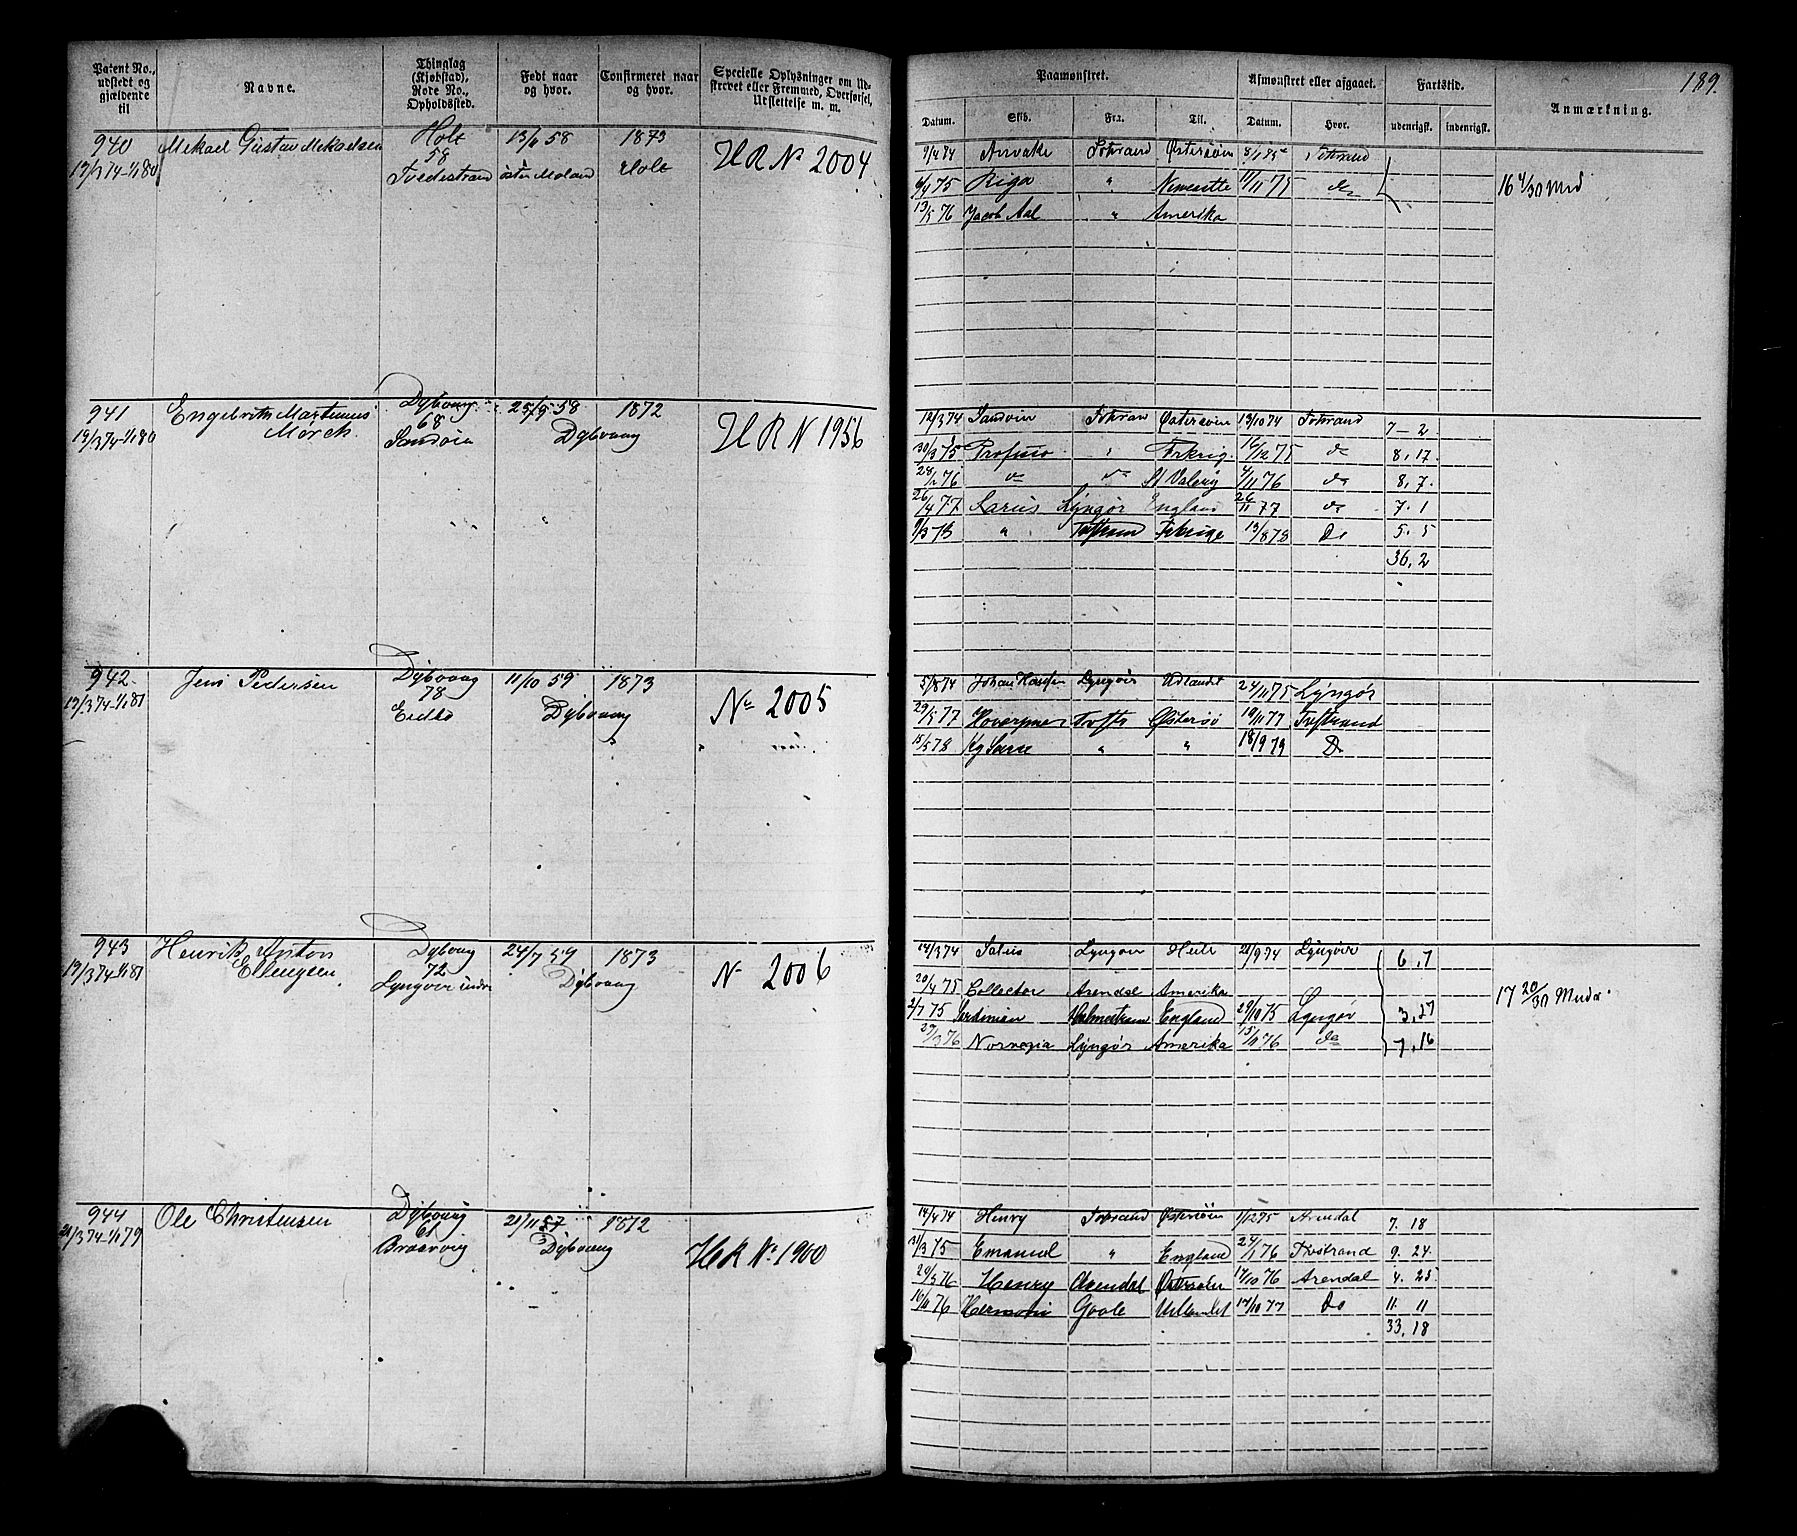 189.
Patent No., udstedt og gjældende til
Navne.
Thinglag (Kjøbstad), Rode No., Opholdssted.
Født naar og hvor.
Confirmeret naar og hvor.
Specielle Oplysninger om Udskrevet eller Fremmed, Overførsel, Udslettelse m. m.
Paamønstret.
Afmønstret eller afgaaet.
Fartstid.
Anmærkning.
Datum. Skib. Fra. Til. Datum. Hvor. udenrigsk. indenrigsk.
940 Mekael Gustav Mekaelsen Holt 13/6 58 1873
13/3 74-1/1 80 58 HR No 2004
Tvedestrand øster Moland Holt
9/4 74 Østersøen 8/1 75
6/4 75 Riga " Newcastle 11/11 75 do 16 4/30 Md
13/5 76 Jacob Aal " Amerika
941 Engebrith Martinius Dybvaag 25/9 58 1872
13/3 74-1/1 80 Mørch. 68 Dybvaag HR N 1956
Sandøen
12/3 74 Sandøen Østersøen 13/10 74 7-2
30/3 75 " 16/12 75 do 8, 17.
28/2 76 do do St Valery 4/11 76 do 8, 7.
26/4 77 Larus Lyngør England 26/11 77 do 7. 1
9/3 78 " 13/8 78 Do 5. 5
36, 2
942 Jens Pedersen Dybvaag 11/10 59 1873
13/3 74-1/1 81 78 Dybvaag No 2005
5/8 74 Lyngør Udlandet 24/11 75 Lyngør
29/5 77 Østersø 19/11 77 Tvstrand
15/5 78 " " 18/9 79 Do
943 Henrik Anton Dybvaag 24/7 59 1873
13/3 74-1/1 81 Ellengsen 72 Dybvaag N 2006
Lyngør indre
14/3 74 Lyngør 21/9 74 Lyngør 6, 7
20/4 75 Collector Arendal Amerika
17 20/30 Mndr.
2/7 75 England 29/10 75 Lyngør 3, 27
27/3 76 Norvegia Lyngør Amerika 15/11 76 do 7, 16
944 Ole Christensen Dybvaag 21/11 57 1872
21/3 74-1/1 79 61 Dybvaag HR No 1900
14/4 74 Henry Østersøen 1/12 75 Arendal 7. 18
31/3 75 Emanuel " England 24/1 76 Tvstrand 9. 24.
29/5 76 Henry Arendal Østersøen 17/10 76 Arendal 4. 25
16/11 76 Goole Udlandet 17/10 77 Do 11. 11
33, 18